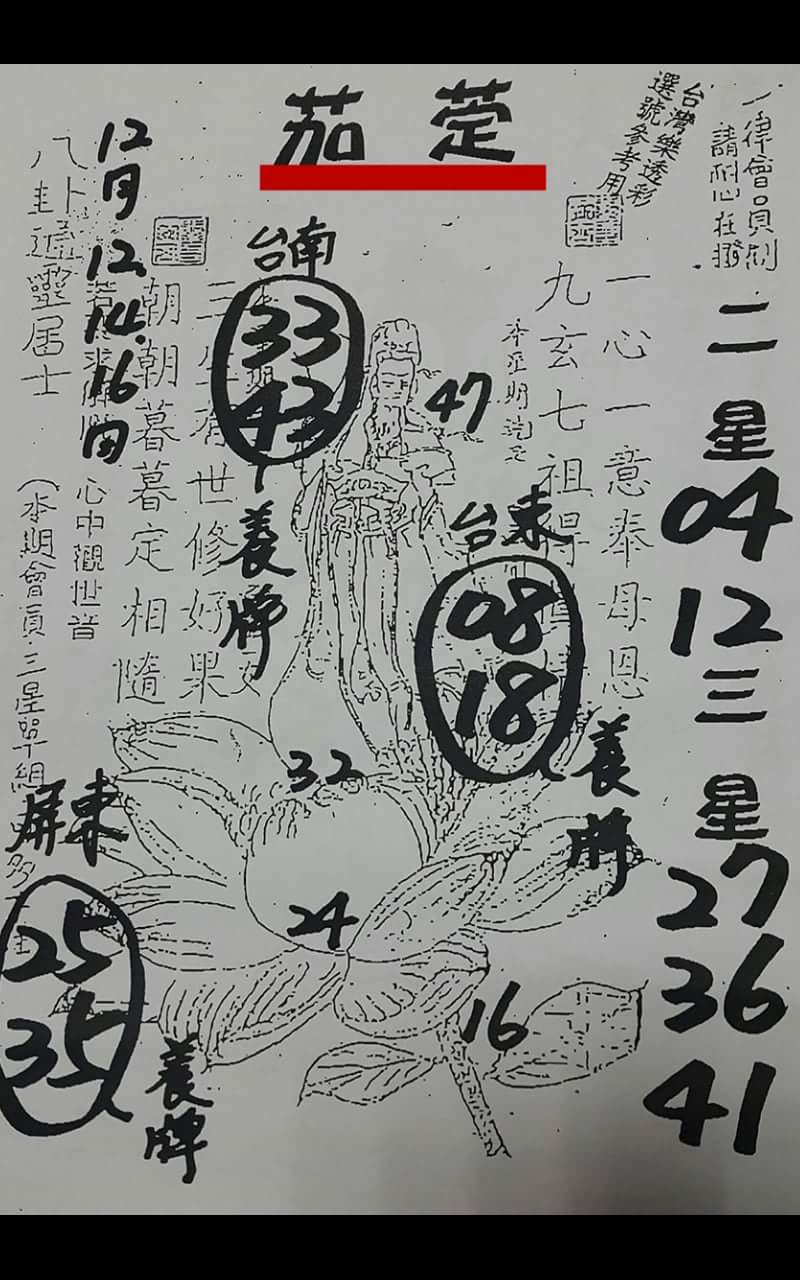 茄萣
台灣樂透彩
選號參考用
一律會員制
請耐心在撥
二星
04
12
三星
27
36
41
一心一意奉母恩
九玄七祖得
台南
33
43
養牌
47
台東
08
18
養牌
朝朝暮暮定相隨
世修好果
心中觀世音
八卦
居士
12
月
12.
14.
16
(本期會員三星單組
屏東
25
35
養牌
32
24
16